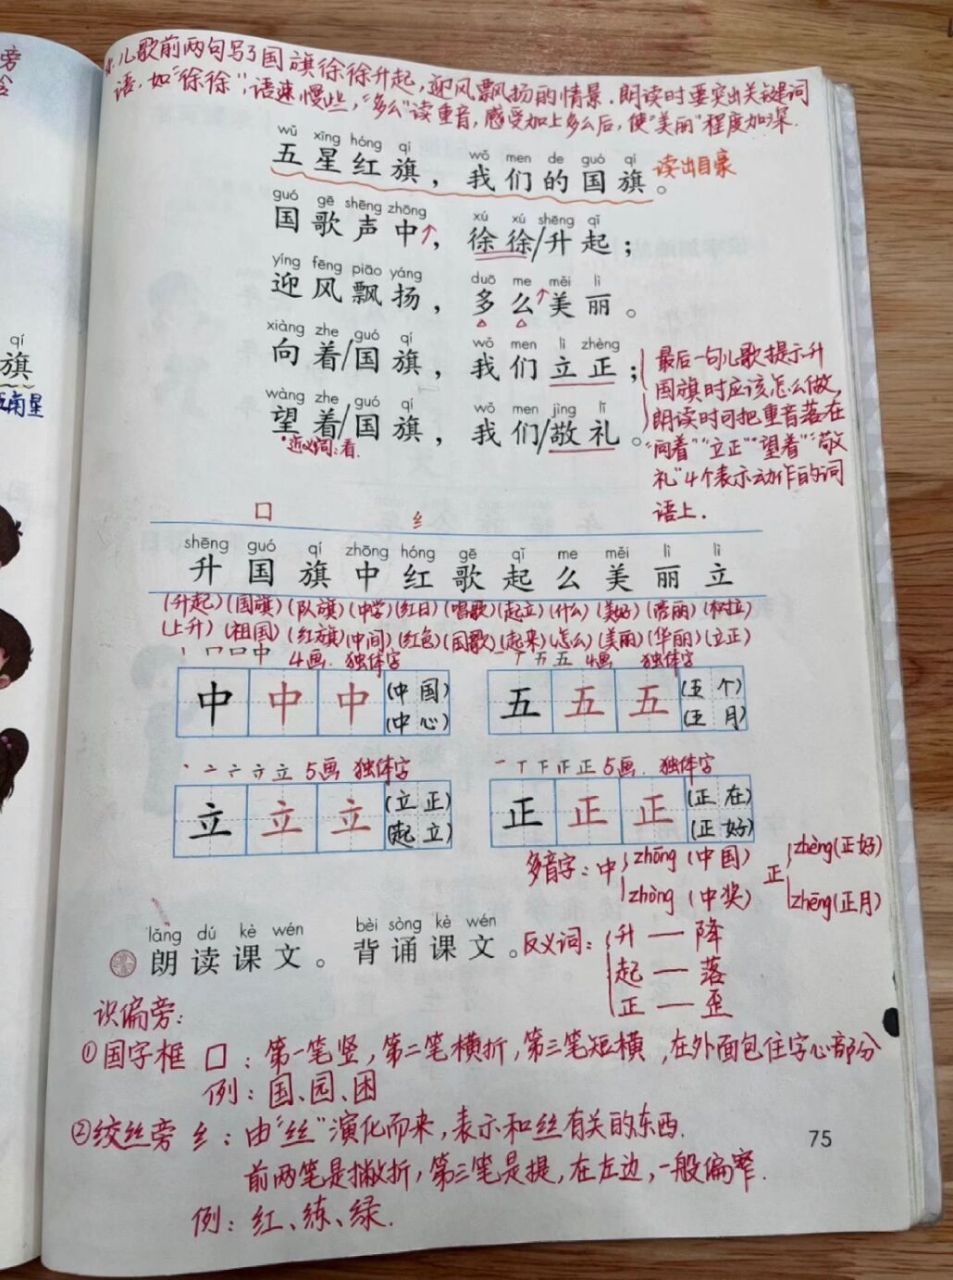 旁
念
qí
旗
五角星
儿歌前两句写了国旗徐徐升起，迎风飘扬的情景。朗读时要突出关键词
语。如"徐徐"，语速慢些，"多么"读重音，感受加上多么后，使"美丽"程度加深。
wǔ xīng hóng qí wǒ men de guó qí
五星红旗，我们的国旗。 读出自豪
guó gē shēng zhōng xú xú shēng qǐ
国歌声中↑，徐徐/升起；
yíng fēng piāo yáng duō me měi lì
迎风飘扬，多么↑美丽。
xiàng zhe guó qí wǒ men lì zhèng
向着/国旗，我们立正；
wàng zhe guó qí wǒ men jìng lǐ
望着/国旗，我们/敬礼。
近义词：看
最后一句儿歌提示升
国旗时应该怎么做，
朗读时可把重音落在
"向着""立正""望着""敬
礼"4个表示动作的词
语上．
囗 纟
shēng guó qí zhōng hóng gē qǐ me měi lì lì
升国旗中红歌起么美丽立
(升起)(国旗)(队旗)(中学)(红日)(唱歌)(起立)(什么)(美好)(秀丽)(树立)
(上升)(祖国)(红旗)(中间)(红色)(国歌)(起来)(怎么)(美丽)(华丽)(立正)
丨 冂 口 中 4画．独体字 一 丆 五 五 4画 独体字
中 中 中 (中国) 五 五 五 (五个)
(中心) (五月)
丶 亠 亠 立 立 5画 独体字 一 丅 下 正 正 5画．独体字
立 立 立 (立正) 正 正 正 (正在)
(起立) (正好)
多音字：中 zhōng (中国) 正 zhèng(正好)
zhòng (中奖) zhēng(正月)
lǎng dú kè wén bèi sòng kè wén
朗读课文。背诵课文。
反义词：升 — 降
起 — 落
正 — 歪
识偏旁：
①国字框 囗：第一笔竖，第二笔横折，第三笔短横，在外面包住字心部分
例：国、园、困
②绞丝旁 纟：由"丝"演化而来，表示和丝有关的东西．
前两笔是撇折，第三笔是提，在左边，一般偏窄．
例：红、练、绿．
75